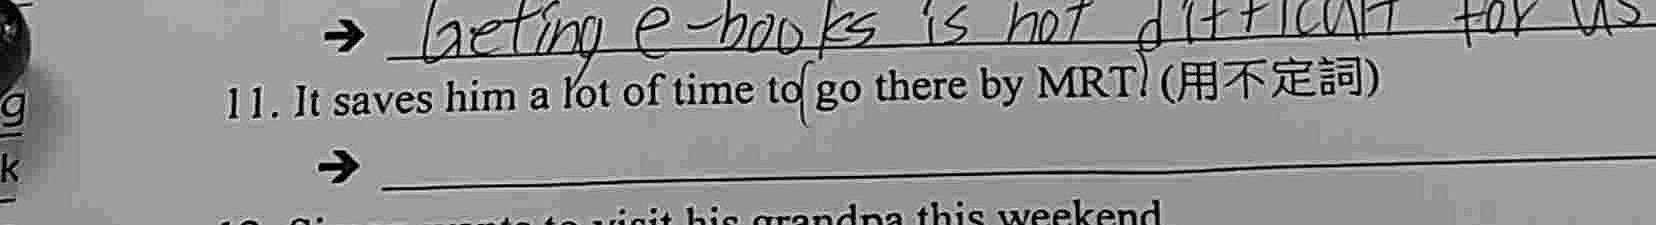 g
k
→ Geting e-books is not difficult for us
11. It saves him a lot of time to (go there by MRT.) (用不定詞)
→
to visit his grandpa this weekend